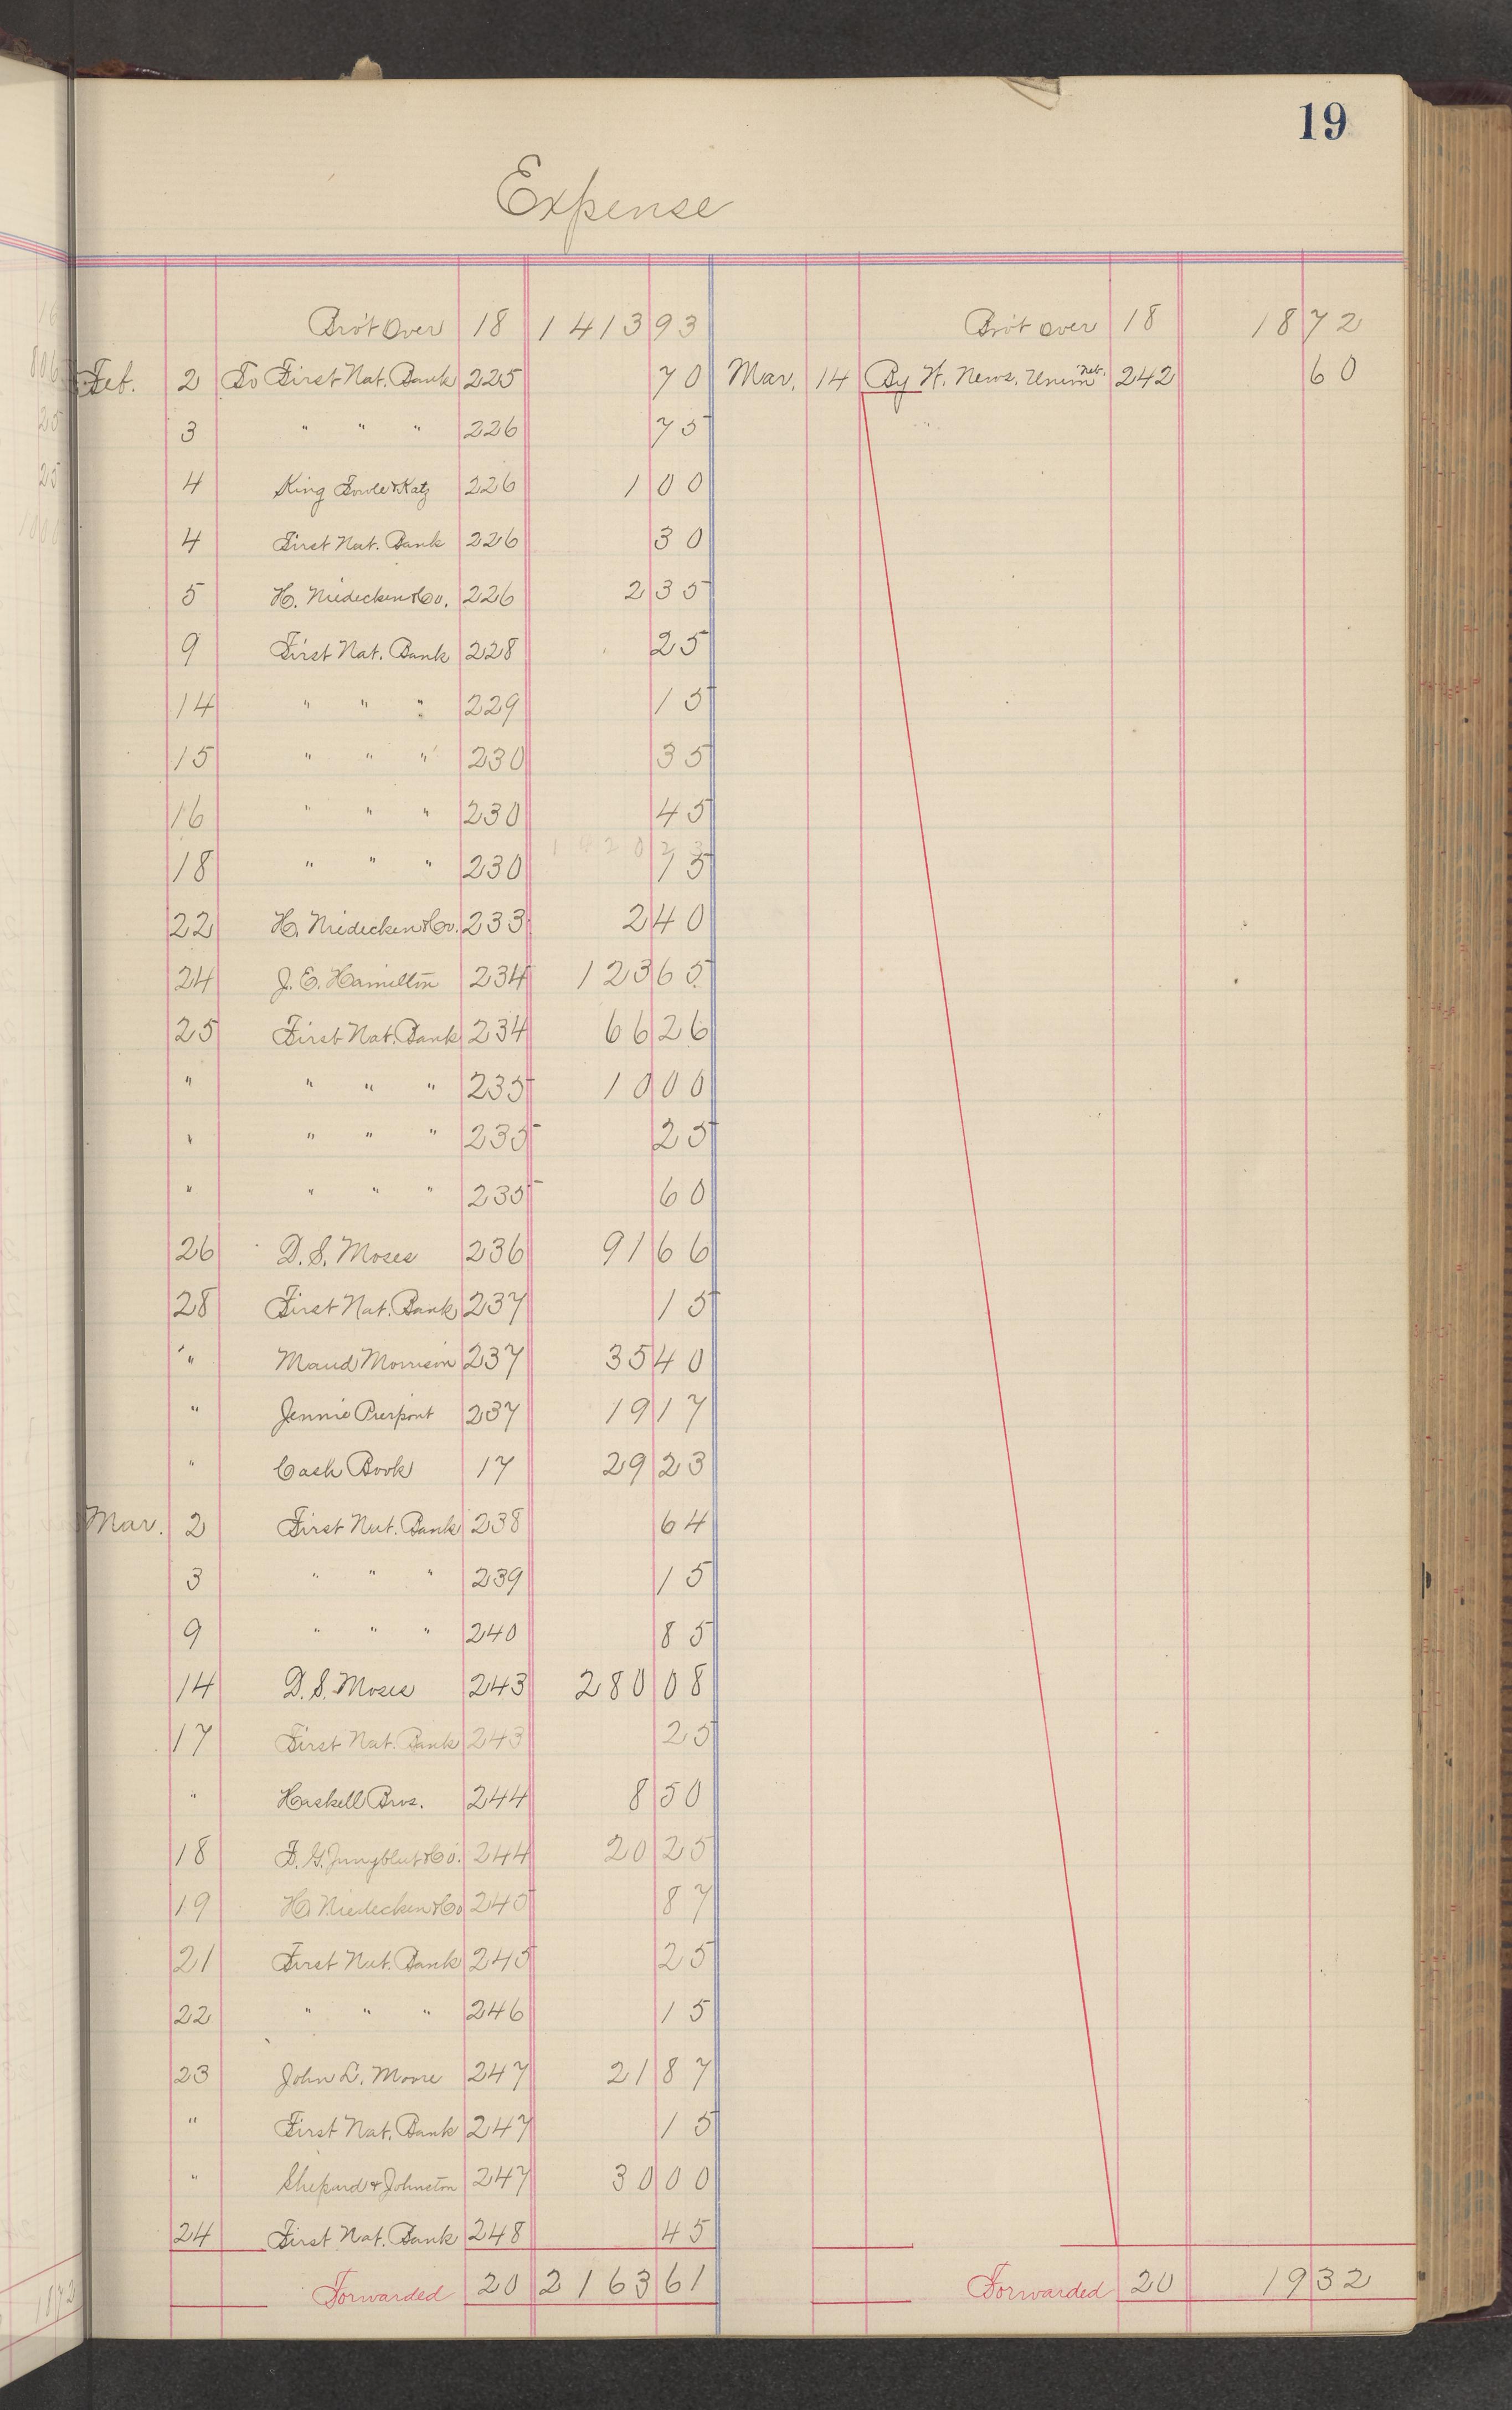 19
Expense
Bro't Over 18 1413 93 Bro't over 18 18 72
Feb. 2 To First Nat. Bank 225 70 Mar. 14 By W. News. Union net. 242 60
3 " " " 226 75
4 King Fowle & Katz 226 1 00
4 First Nat. Bank 226 30
5 H. Niedecken & Co. 226 2 35
9 First Nat. Bank 228 25
14 " " " 229 15
15 " " " 230 35
16 " " " 230 45
18 " " " 230 15
22 H. Niedecken & Co. 233 2 40
24 J. E. Hamilton 234 123 65
25 First Nat. Bank 234 66 26
" " " " 235 10 00
" " " " 235 25
" " " " 235 60
26 D. S. Moses 236 91 66
28 First Nat. Bank 237 15
" Maud Morrison 237 35 40
" Jennie Pierpont 237 19 17
" Cash Book 17 29 23
Mar. 2 First Nat. Bank 238 64
3 " " " 239 15
9 " " " 240 85
14 D. S. Moses 243 280 08
17 First Nat. Bank 243 25
" Haskell Bros. 244 8 50
18 F. G. Jungblut & Co. 244 20 25
19 H. Niedecken & Co 245 87
21 First Nat. Bank 245 25
22 " " " 246 15
23 John L. Moore 247 21 87
" First Nat. Bank 247 15
" Shepard & Johnston 247 30 00
24 First Nat. Bank 248 45
Forwarded 20 2163 61 Forwarded 20 19 32